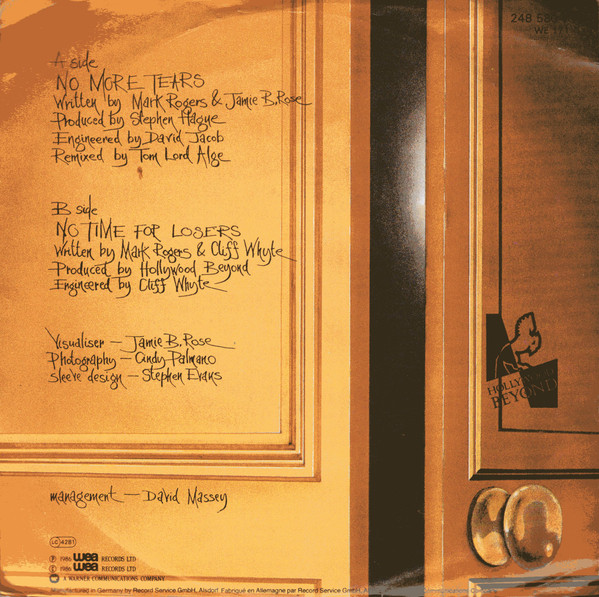 A side
NO MORE TEARS
Written by Mark Rogers & Jamie B. Rose
Produced by Stephen Hague
Engineered by David Jacob
Remixed by Tom Lord Alge
B side
NO TIME FOR LOSERS
Written by Mark Rogers & Cliff Whyte
Produced by Hollywood Beyond
Engineered by Cliff Whyte
Visualiser — Jamie B. Rose
Photography — Cindy Palmano
Sleeve design — Stephen Evans
management — David Massey
248
WE
HOLLYWOOD
BEYOND
LC 4281
℗ 1986 wea RECORDS LTD
© 1986 wea RECORDS LTD
A WARNER COMMUNICATIONS COMPANY
Manufactured in Germany by Record Service GmbH, Alsdorf. Fabriqué en Allemagne par Record Service GmbH, Communications